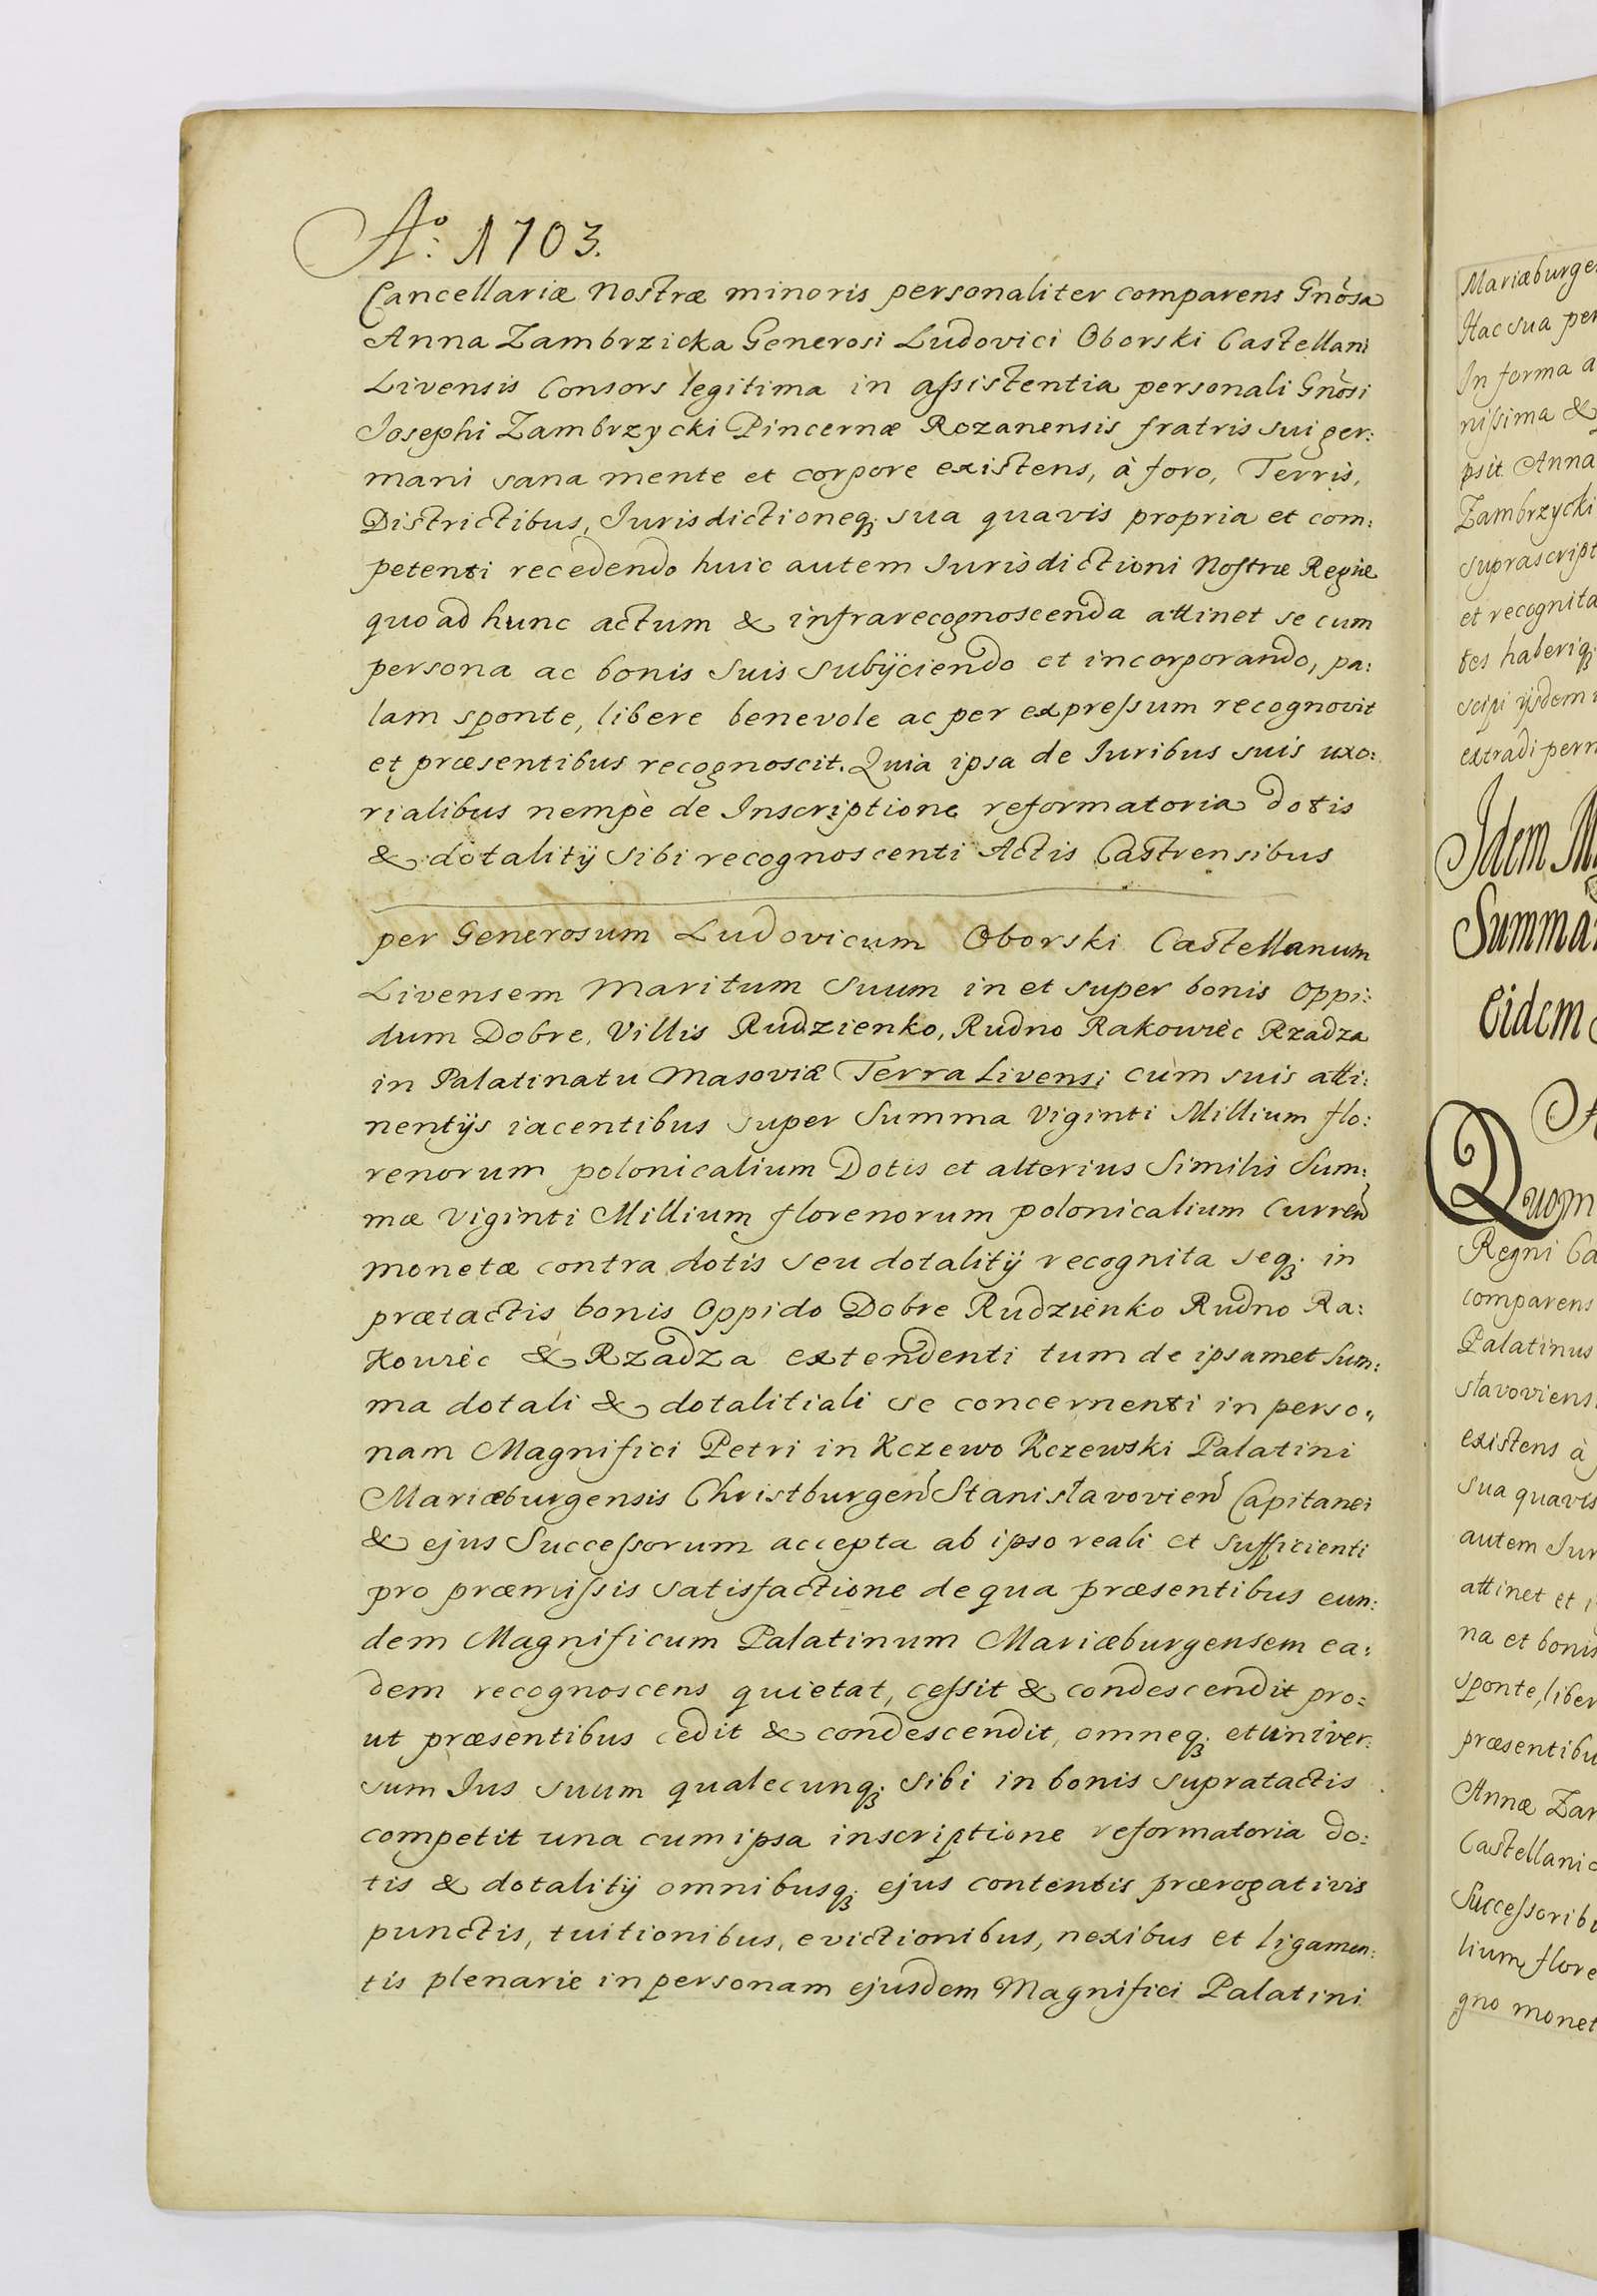 Aº: 1703.
Cancellariæ Nostræ minoris personaliter comparens Gnõsa
Anna Zambrzicka Generosi Ludovici Oborski Castellani
Livensis Consors legitima in aſsistentia personali Gnõsi
Josephi Zambrzycki Pincernæ Rozanensis fratris sui ger:
mani sana mente et corpore existens, à foro, Terris,
Districtibus, Jurisdictioneq; sua quavis propria et com:
petenti recedendo huic autem Jurisdictioni Nostræ Regiæ
quo ad hunc actum & infrarecognoscenda attinet se cum
persona ac bonis suis subijciendo et incorporando, pa:
lam sponte, libere benevole ac per expreſsum recognovit
et præsentibus recognoscit. Quia ipsa de Juribus suis uxo:
rialibus nempè de Inscriptione reformatoria dotis
& dotalitij sibi recognoscenti Actis Castrensibus
per Generosum Ludovicum Oborski Castellanum
Livensem Maritum Suum in et super bonis Oppi:
dum Dobre, Villis Rudzienko, Rudno Rakowièc Rzadza
in Palatinatu Masoviæ Terra Livensi cùm suis atti:
nentijs iacentibus super Summa Viginti Millium flo:
renorum polonicalium Dotis et alterius Similis Sum:
mæ Viginti Millium florenorum polonicalium Curreñ
monetæ contra dotis seu dotalitij recognita seq; in
prætactis bonis Oppido Dobre Rudzienko Rudno Ra:
kowièc & Rzadza extendenti tum de ipsamet Sum:
ma dotali & dotalitiali se concernenti in perso„
nam Magnifici Petri in Kczewo Kczewski Palatini
Mariæburgensis Christburgeñ Stanislavovieñ Capitanei
& ejus Succeſsorum accepta ab ipso reali et sufficienti
pro præmiſsis satisfactione de qua præsentibus eun:
dem Magnificum Palatinum Mariæburgensem ea:
dem recognoscens quietat, ceſsit & condescendit pro:
ut præsentibus cedit & condescendit, omneq; et univer:
sum Jus suum qualecunq; sibi in bonis supratactis
competit una cum ipsa inscriptione reformatoria do:
tis & dotalitij omnibusq; ejus contentis prærogativis
punctis, tuitionibus, evictionibus, nexibus et ligamen:
tis plenarie in personam ejusdem Magnifici Palatini
Hac sua
In forma
niſsima &
psit Anna
Zambrzycki
et recognita
Idem
Eidem
Regni
comparens
Palatinus
existens à
sua quavis
autem
attinet et
na et bonis
sponte,
Annæ